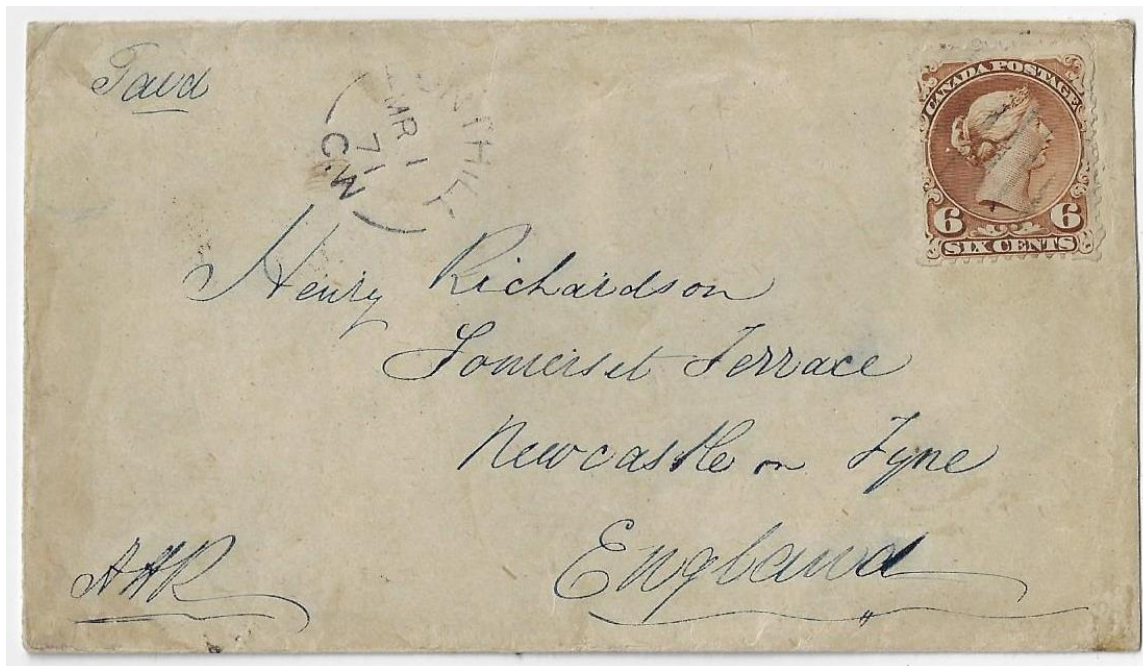 Paid
FONTHILL
MR 1
71
C.W
CANADA POSTAGE
6 6
SIX CENTS
Henry Richardson
Somerset Terrace
Newcastle on Tyne
England
AHR